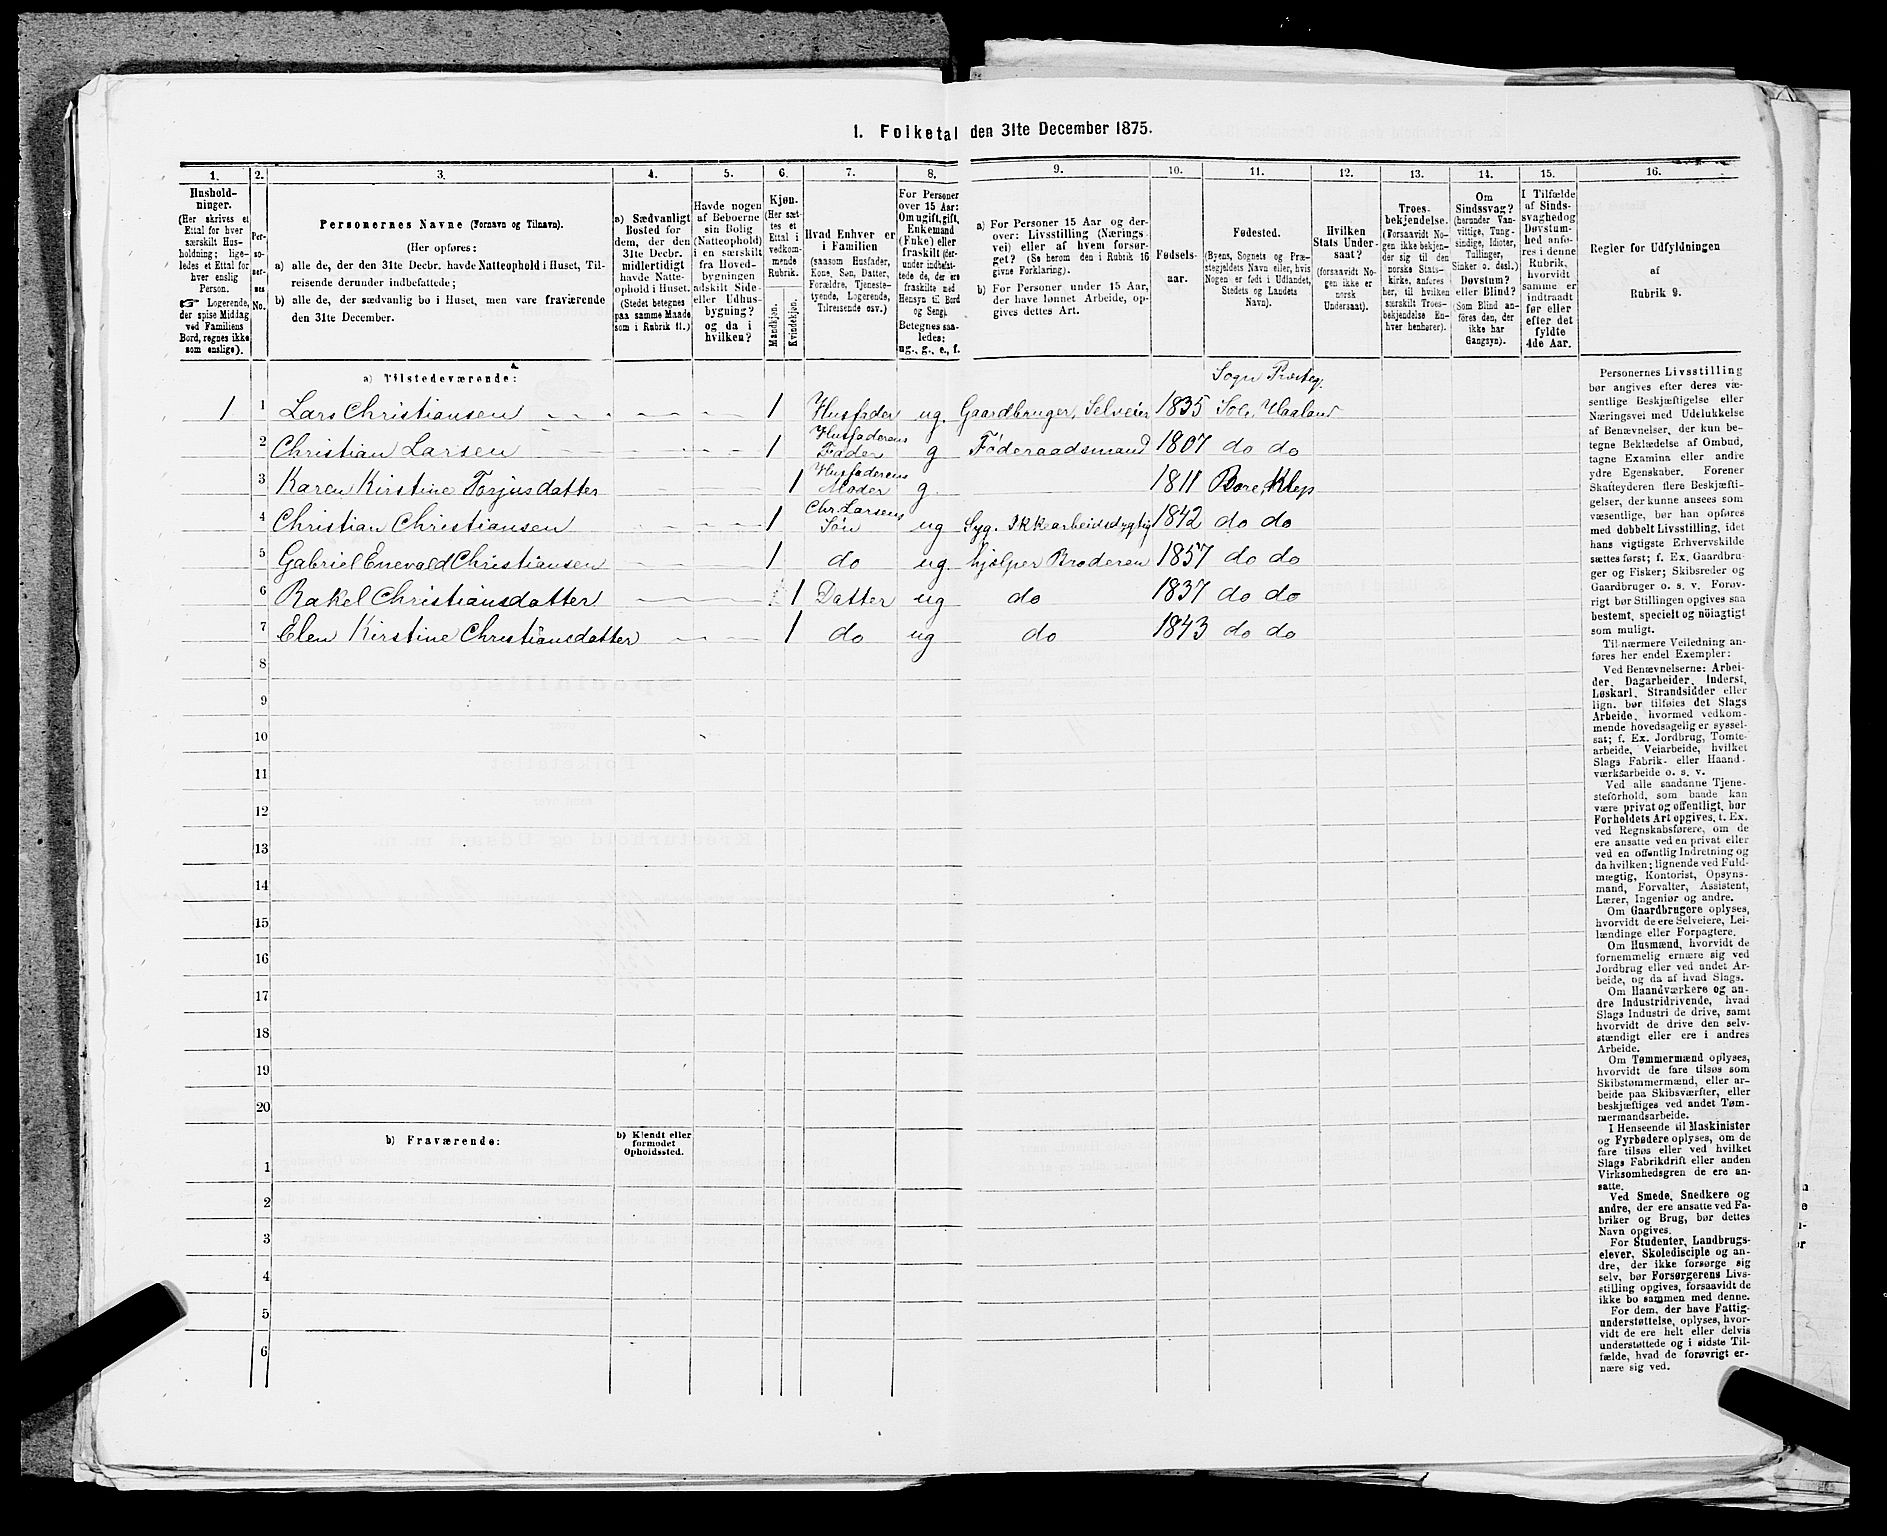 1. Folketal den 31te December 1875.
1. 2. 3. 4. 5. 6. 7. 8. 9. 10. 11. 12. 13. 14. 15. 16.
Hushold-
ninger.
(Her skrives et
Ettal for hver
særskilt Hus-
holdning; lige-
ledes et Ettal for
hver enslig
Person.
☞ Logerende,
der spise Middag
ved Familiens
Bord, regnes ikke
som enslige).
Per-
so-
ner-
nes
No.
Personernes Navne (Fornavn og Tilnavn).
(Her opføres:
a) alle de, der den 31te Decbr. havde Natteophold i Huset, Til-
reisende derunder indbefattede;
b) alle de, der sædvanlig bo i Huset, men vare fraværende
den 31te December.
a) Sædvanligt
Bosted for
dem, der den
31te Decbr.
midlertidigt
havde Natte-
ophold i Huset.
(Stedet betegnes
paa samme Maade
som i Rubrik 11.)
Havde nogen
af Beboerne
sin Bolig
(Natteophold)
i en særskilt
fra Hoved-
bygningen
adskilt Side-
eller Udhus-
bygning?
og da i
hvilken?
Kjøn.
(Her sæt-
tes et
Ettal i
vedkom-
mende
Rubrik.
Mandkjøn.
Kvindekjøn.
Hvad Enhver er
i Familien
(saasom Husfader,
Kone, Søn, Datter,
Forældre, Tjeneste-
tyende, Logerende,
Tilreisende osv.)
For Personer
over 15 Aar:
Om ugift, gift,
Enkemand
(Enke) eller
fraskilt (der-
under indbefat-
tede de, der ere
fraskilte med
Hensyn til Bord
og Seng).
Betegnes saa-
ledes:
ug., g., e., f.
a) For Personer 15 Aar og der-
over: Livsstilling (Nærings-
vei) eller af hvem forsør-
get? (Se herom den i Rubrik 16
givne Forklaring).
b) For Personer under 15 Aar,
der have lønnet Arbeide, op-
gives dettes Art.
Fødsels-
aar.
Fødested.
(Byens, Sognets og Præ-
stegjeldets Navn eller, hvis
Nogen er født i Udlandet,
Stedets og Landets
Navn).
Hvilken
Stats Under-
saat?
(forsaavidt No-
gen ikke er
norsk
Undersaat).
Troes-
bekjendelse.
(Forsaavidt No-
gen ikke bekjen-
der sig til den
norske Stats-
kirke, anføres
her, til hvilken
særskilt Troes-
bekjendelse En-
hver henhører).
Om
Sindssvag?
(herunder Van-
vittige, Tung-
sindige, Idioter,
Tullinger,
Sinker o. desl.)
Døvstum?
eller Blind?
(Som Blind an-
føres den, der
ikke har
Gangsyn).
I Tilfælde
af Sinds-
svaghed og
Døvstum-
hed anfø-
res i denne
Rubrik,
hvorvidt
samme er
indtraadt
før eller
efter det
fyldte
4de Aar.
Regler for Udfyldningen
af
Rubrik 9.
a) Tilstedeværende: Sogn Præsteg.
1 1 Lars Christiansen 1 Husfader ug. Gaardbruger, Selveier 1835 Sole, Haaland
2 Christian Larsen 1 Husfaderens Fader g Föderaadsmand 1807 do do
3 Karen Kirstine Torjusdatter 1 Husfaderens Moder g 1811 Bore, Klep
4 Christian Christiansen 1 Chr. Larsens Sön ug Syg. Ikke arbeidsdygtig 1842 do do
5 Gabriel Enevald Christiansen 1 do ug. hjælper Broderen 1857 do do
6 Rakel Christiansdatter 1 Datter ug do 1837 do do
7 Elen Kirstine Christiansdatter 1 do ug do 1843 do do
8
9
10
11
12
13
14
15
16
17
18
19
20
b) Fraværende: b) Kjendt eller
formodet
Opholdssted.
1
2
3
4
5
6
Personernes Livsstilling
bør angives efter deres væ-
sentlige Beskjæftigelse eller
Næringsvei med Udelukkelse
af Benævnelser, der kun be-
tegne Beklædelse af Ombud,
tagne Examina eller andre
ydre Egenskaber. Forener
Skatteyderen flere Beskjæfti-
gelser, der kunne ansees som
væsentlige, bør han opføres
med dobbelt Livsstilling, idet
hans vigtigste Erhvervskilde
sættes først; f. Ex. Gaardbru-
ger og Fisker; Skibsreder og
Gaardbruger o. s. v. Forøv-
rigt bør Stillingen opgives saa
bestemt, specielt og nöiagtigt
som muligt.
Til nærmere Veiledning an-
føres her endel Exempler:
Ved Benævnelserne: Arbei-
der, Dagarbeider, Inderst,
Løskarl, Strandsidder eller
lign. bør tilføies det Slags
Arbeide, hvormed vedkom-
mende hovedsagelig er syssel-
sat; f. Ex. Jordbrug, Tomte-
arbeide, Veiarbeide, hvilket
Slags Fabrik- eller Haand-
værksarbeide o. s. v.
Ved alle saadanne Tjene-
steforhold, som baade kan
være privat og offentligt, bør
Forholdets Art opgives, t. Ex.
ved Regnskabsførere, om de
ere ansatte ved en privat eller
ved en offentlig Indretning og
da hvilken; lignende ved Fuld-
mægtig, Kontorist, Opsyns-
mand, Forvalter, Assistent,
Lærer, Ingeniør og andre.
Om Gaardbrugere oplyses,
hvorvidt de ere Selveiere, Lei-
lændinge eller Forpagtere.
Om Husmænd, hvorvidt de
fornemmelig ernære sig ved
Jordbrug eller ved andet Ar-
beide, og da af hvad Slags.
Om Haandværkere og an-
dre Industridrivende, hvad
Slags Industri de drive, samt
hvorvidt de drive den selv-
stændigt eller ere i andres
Arbeide.
Om Tømmermænd oplyses,
hvorvidt de fare tilsøs som
Skibstømmermænd, eller ar-
beide paa Skibsværfter, eller
beskjæftiges ved andet Tøm-
mermandsarbeide.
I Henseende til Maskinister
og Fyrbødere oplyses, om de
fare tilsøs eller ved hvilket
Slags Fabrikdrift eller anden
Virksomhedsgren de ere an-
satte.
Ved Smede, Snedkere og
andre, der ere ansatte ved Fa-
briker og Brug, bør dettes
Navn opgives.
For Studenter, Landbrugs-
elever, Skoledisciple og an-
dre, der ikke forsørge sig
selv, bør Forsørgerens Livs-
stilling opgives, forsaavidt de
ikke bo sammen med denne.
For dem, der have Fattig-
understøttelse, oplyses, hvor-
vidt de ere helt eller delvis
understøttede og i sidste Til-
fælde, hvad de forøvrigt er-
nære sig ved.